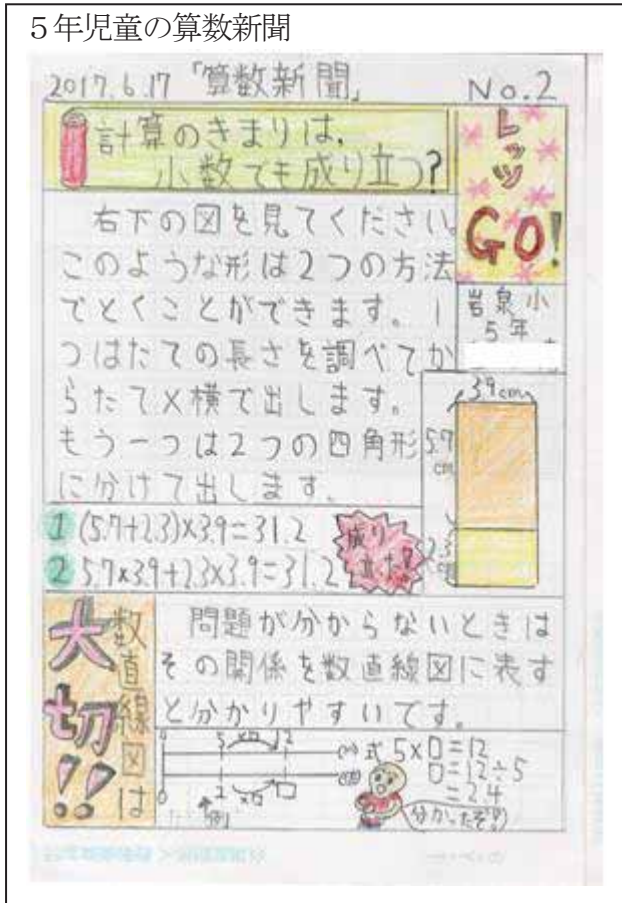 ５年児童の算数新聞
2017.6.17「算数新聞」 No.2
計算のきまりは、
小数でも成り立つ?
レッツ
GO!
岩泉小
5年
右下の図を見てください。
このような形は2つの方法
でとくことができます。1
つはたての長さを調べてか
らたて×横で出します。
もう一つは2つの四角形
に分けて出します。
3.9cm
5.7
cm
2.3
cm
1 (5.7+2.3)×3.9=31.2
2 5.7×3.9+2.3×3.9=31.2
成り
立つ!
大切!!
数直線図は
問題が分からないときは
その関係を数直線図に表す
と分かりやすいです。
0 5 ×□ 12
0 1 ×□ □
例
式 5×□=12
□=12÷5
=2.4
分かったぞ!